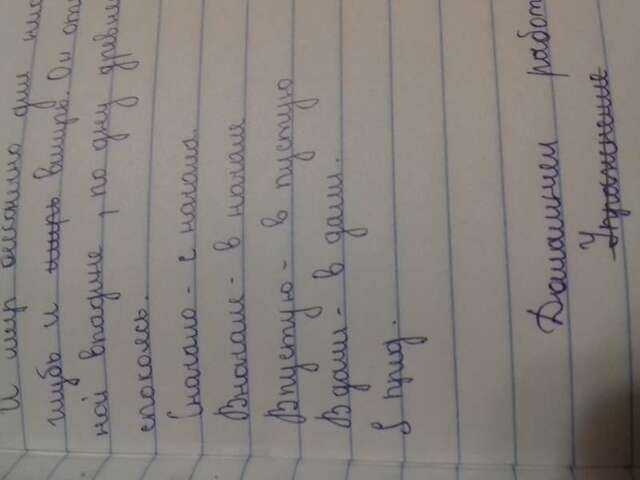 И мир бесконечно для
глубь и ширь вширь. Он от
ной впадине, по дну древне
спокоясь.
Сначало - с начала.
Вначале - в начале
Впустую - в пустую
Вдали - в дали.
5 пред.
Домашнем работ
Упражнение